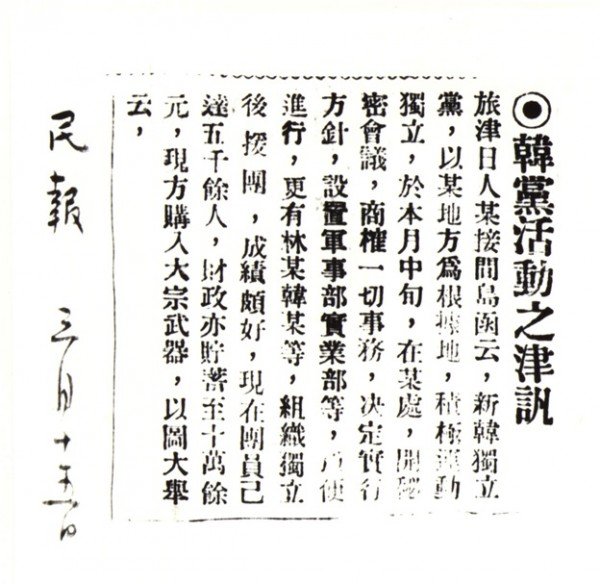 ◉韓黨活動之津訊
旅津日人某接間島函云，新韓獨立
黨，以某地方爲根據地，積極運動
獨立，於本月中旬，在某處，開秘
密會議，商榷一切事務，决定實行
方針，設置軍事部實業部等，以便
進行，更有林某韓某等，組織獨立
後援團，成績頗好，現在團員已
達五千餘人，財政亦貯蓄至十萬餘
元，現方購入大宗武器，以圖大舉
云，
民報 三月十五日